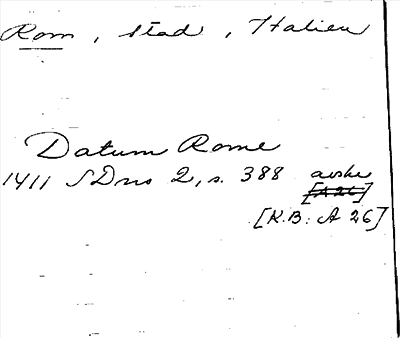 Rom, stad, Italien
Datum Rome
1411 SDns 2, s. 388 avskr
[A 26]
[K.B: A 26]